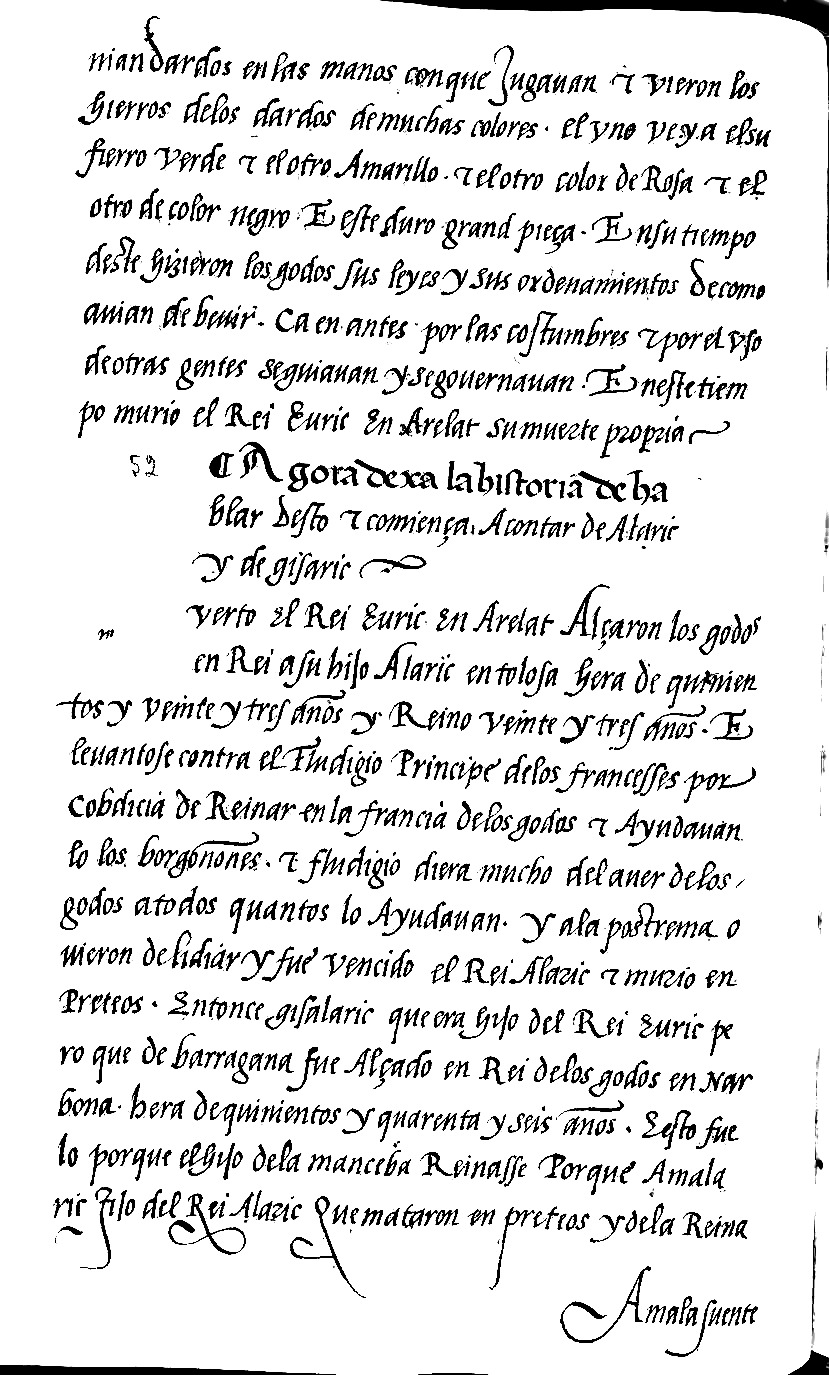 nian dardos en las manos con que Jugauan ⁊ vieron los
hierros delos dardos de muchas colores. el vno veya el su
fierro verde ⁊ el otro Amarillo. ⁊ el otro color de Rosa ⁊ el
otro de color negro. E este duro grand pieça. E nsu tiempo
deste hizieron los godos sus leyes y sus ordenamientos de como
auian de beuir. Ca en antes por las costumbres ⁊ por el vso
de otras gentes seguiauan y se gouernauan. E neste tiem
po murio el Rei Euric En Arelat su muerte propria
52 ¶ Agora dexa la historia de ha
blar desto ⁊ comiença Acontar de Alaric
y de gisaric
m verto el Rei Euric En Arelat Alçaron los godos
en Rei a su hijo Alaric en tolosa hera de quinien
tos y veinte y tres años y Reino veinte y tres años. E
leuantose contra el Fludigio Principe delos francesses por
Cobdicia de Reinar en la francia delos godos ⁊ Ayudauan
lo los borgoñones. ⁊ fludigio diera mucho del auer delos
godos a todos quantos lo Ayudauan. y ala postrema o
uieron de lidiar y fue vencido el Rei Alaric ⁊ murio en
Preteos. Entonce gisalaric que era hijo del Rei Euric pe
ro que de barragana fue Alçado en Rei delos godos en Nar
bona. hera de quinientos y quarenta y seis años. E esto fue
lo porque el hijo dela manceba Reinasse Porque Amala
ric Fijo del Rei Alaric Que mataron en preteos y dela Reina
Amalasuente